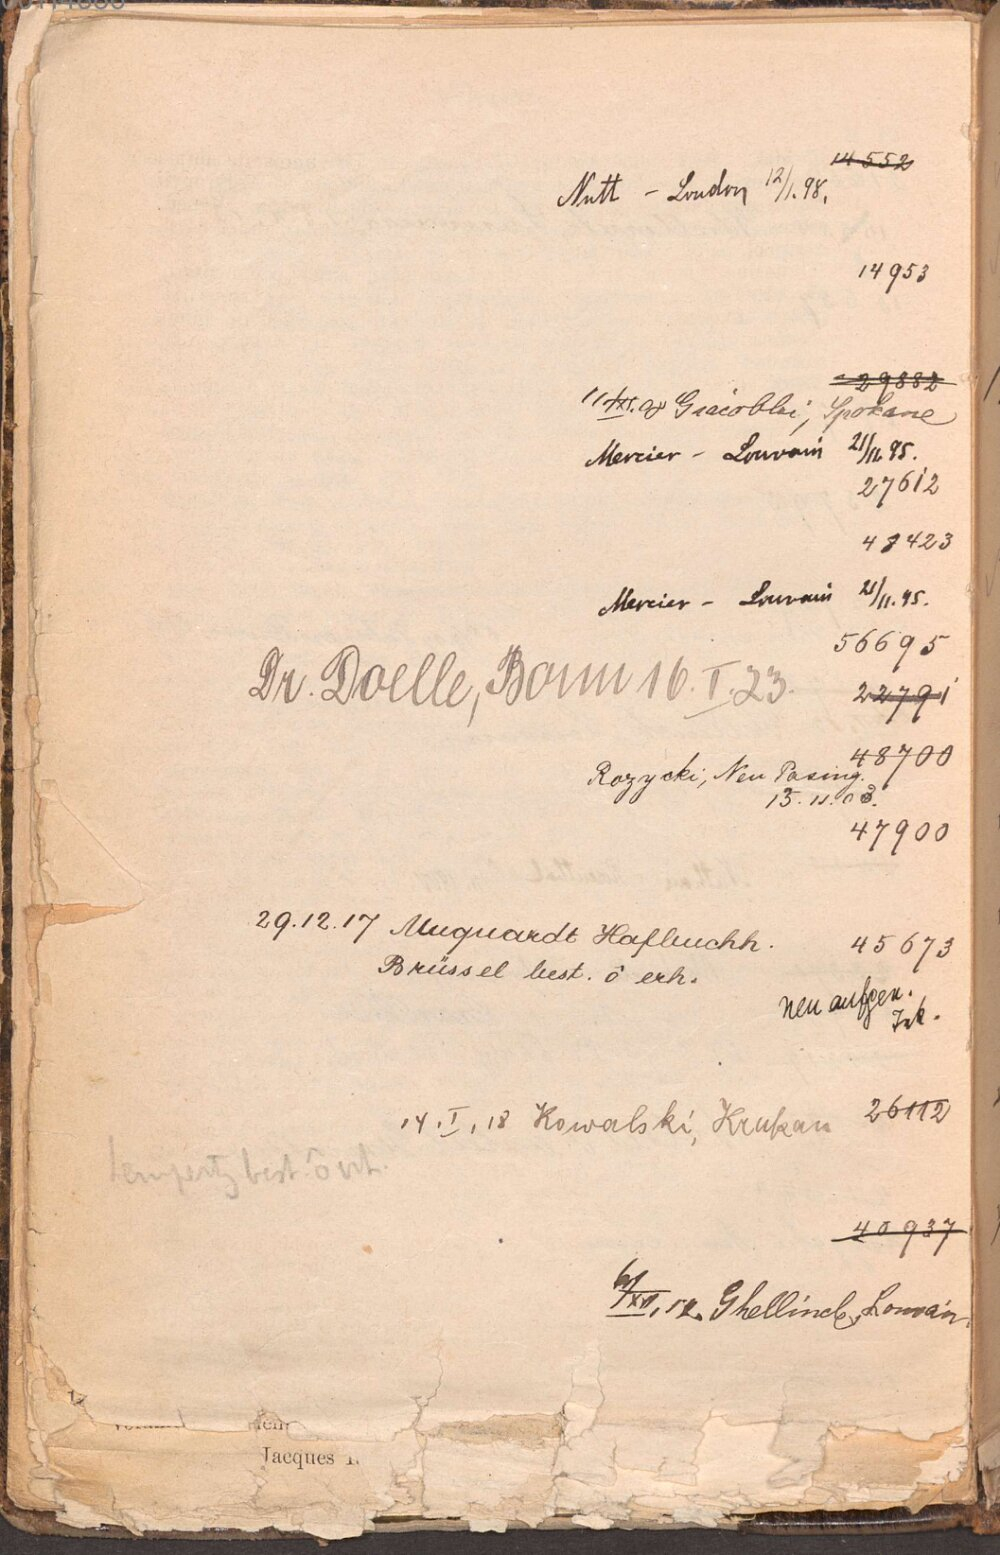 14552
Nutt - London 12/1.98.
14953
29882
Giacobbi, Spokane
Mercier - Louvain 21/11.95.
27612
48423
Mercier - Louvain 21/11.95.
56695
Dr. Doelle, Bonn 16.I.23.
22791
48700
Rozycki, Neu Pasing.
15.11.03.
47900
29.12.17 Muquardt Hofbuchh.
45673
Brüssel best. ô erh.
neu aufgen.
26112
14.I.18 Kowalski, Krakau
Lempertz best. ô vh.
40937
Ghellinck, Louvain
Jacques